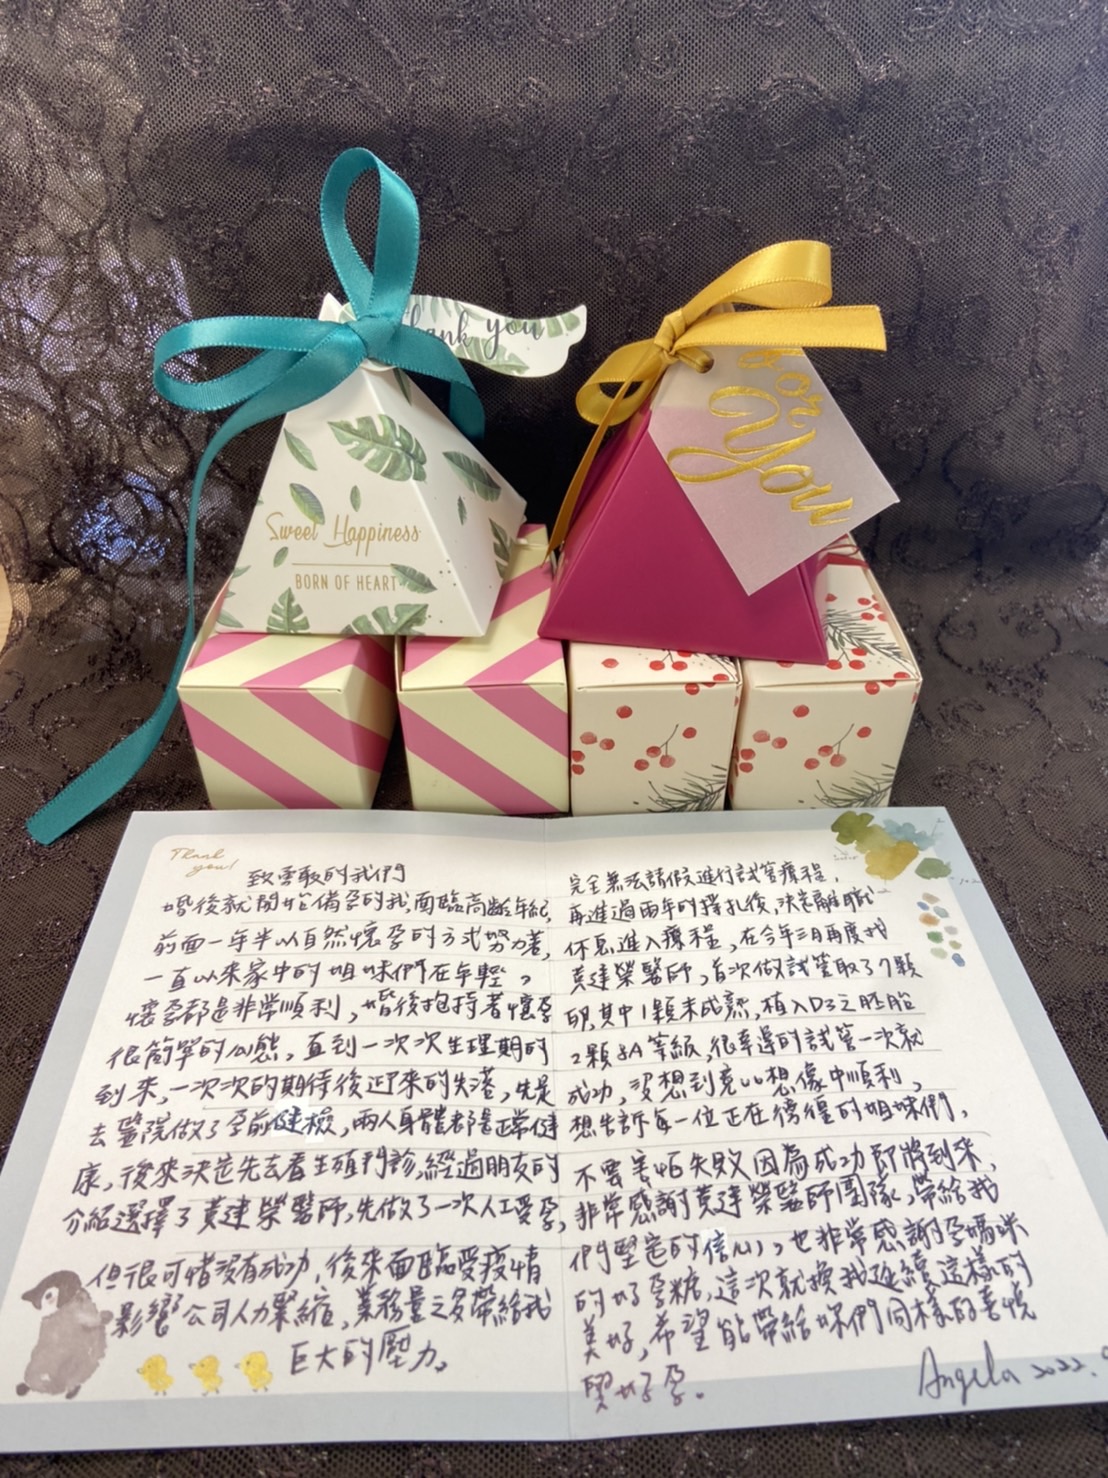 Thank you
For
You
Sweet Happiness
BORN OF HEART
Thank
you!
致勇敢的我們
婚後就開始備孕的我,面臨高齡年紀,
前面一年半以自然懷孕的方式努力著,
一直以來家中的姐妹們在年輕,
懷孕都是非常順利,婚後抱持著懷孕
很簡單的心態,直到一次次生理期的
到來,一次次的期待後迎來的失落,先是
去醫院做了孕前健檢,兩人身體都是正常健
康,後來決定先去看生殖門診,經過朋友的
介紹選擇了黃建榮醫師,先做了一次人工受孕,
但很可惜沒有成功,後來面臨受疫情
影響公司人力緊縮,業務量之多帶給我
巨大的壓力。
完全無法請假進行試管療程,
再進過兩年的掙扎後,決定離職
休息進入療程,在今年三月再度找
黃建榮醫師,首次做試管取了7顆
卵,其中1顆未成熟,植入D3之胚胎
2顆8A等級,很幸運的試管一次就
成功,沒想到竟比想像中順利,
想告訴每一位正在徬徨的姐妹們,
不要害怕失敗因為成功即將到來,
非常感謝黃建榮醫師團隊,帶給我
們堅定的信心,也非常感謝孕媽咪
的好孕糖,這次就換我延續這樣的
美好,希望能帶給妳們同樣的喜悅
與好孕。
Angela 2022.